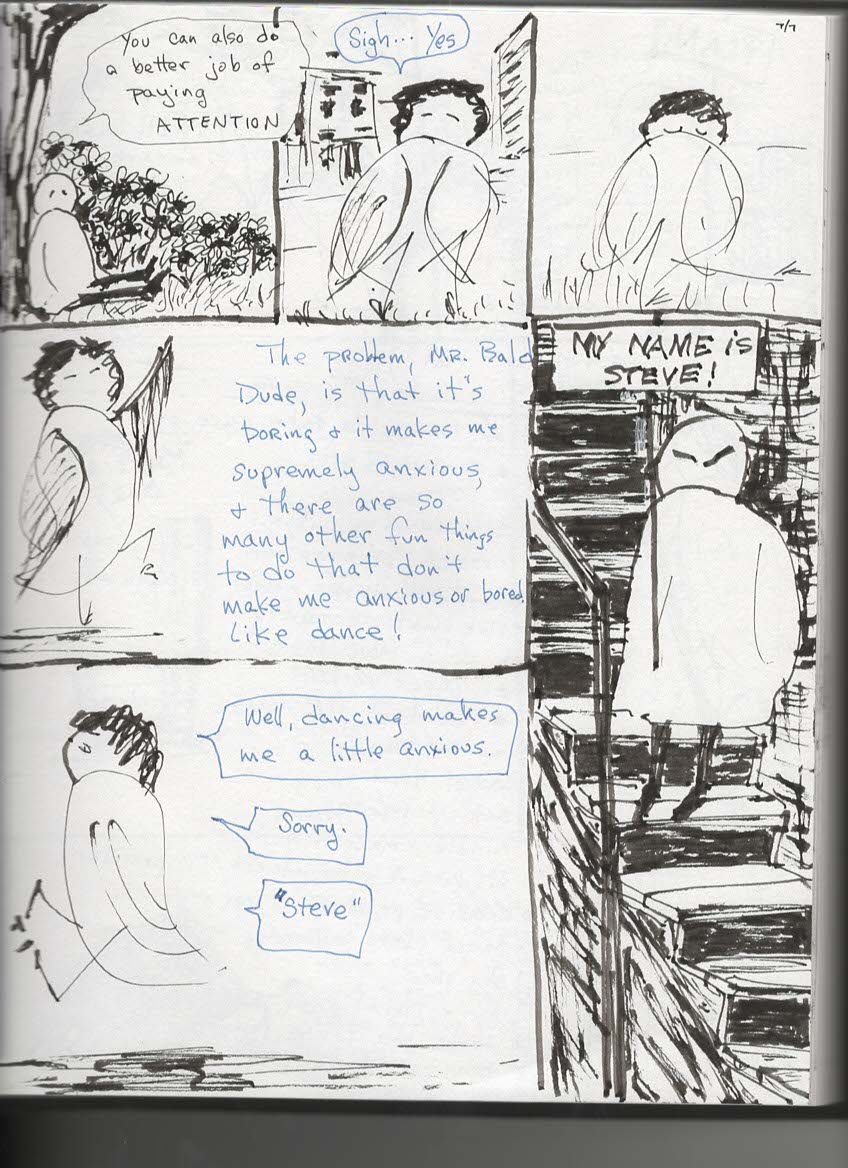 You can also do
a better job of
paying
ATTENTION
Sigh... Yes
7/7
The problem, MR. Bald
Dude, is that it's
boring & it makes me
supremely anxious,
& there are so
many other fun things
to do that don't
make me anxious or bored.
Like dance!
MY NAME iS
STEVE!
Well, dancing makes
me a little anxious.
Sorry.
"Steve"